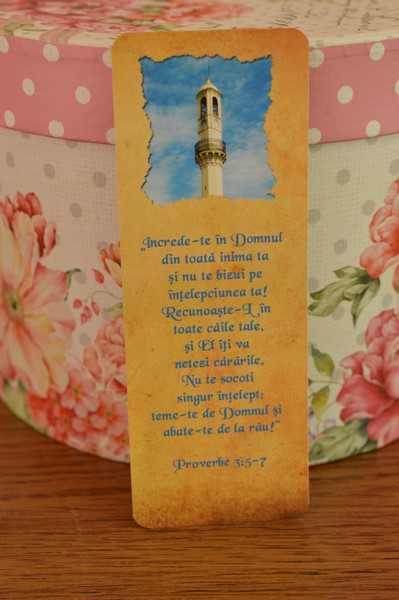 „Increde-te în Domnul
din toată inima ta
și nu te bizui pe
înțelepciunea ta!
Recunoaște-L în
toate căile tale,
și El îți va
netezi cărările.
Nu te socoti
singur înțelept;
teme-te de Domnul și
abate-te de la rău!”
Proverbe 3:5-7